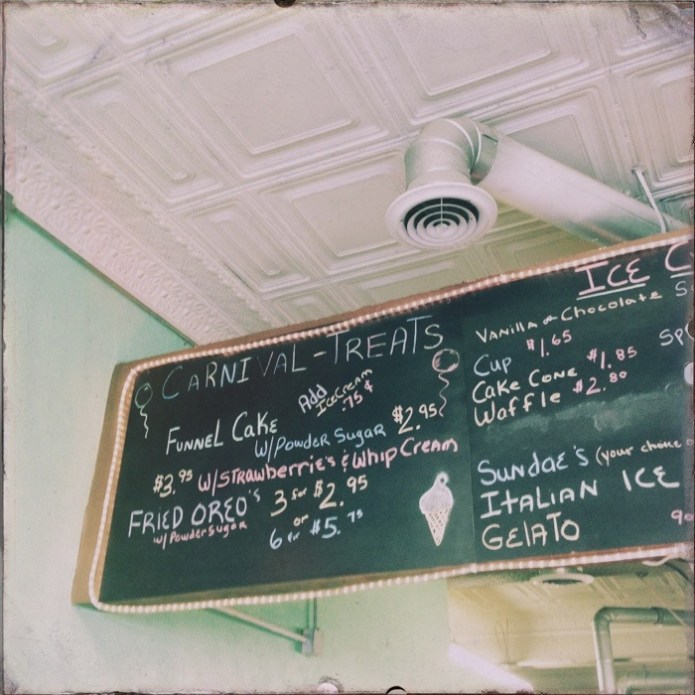 CARNIVAL-TREATS
Add
ICECREAM
.75 ¢
FUNNEL CAKE
W/POWDER SUGAR $2.95
$3.95 W/STRAWBERRIE'S & WHIP CREAM
FRIED OREO'S 3 for $2.95
W/POWDER SUGAR
or
6 for $5.75
ICE C
Vanilla or Chocolate S
Cup $1.65
CAKE CONE $1.85
Waffle $2.80
SUNDAE'S (your choice o
ITALIAN ICE
GELATO